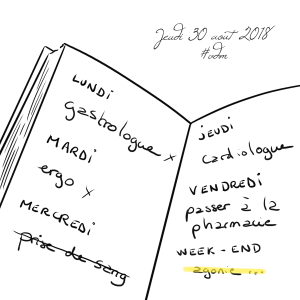 Jeudi 30 août 2018
#odm
LUNDi
Gastrologue x
MARDi
ergo x
MERCREDi
prise de sang
JEUDi
cardiologue
VENDREDi
passer à la
pharmacie
WEEK-END
agonie ...